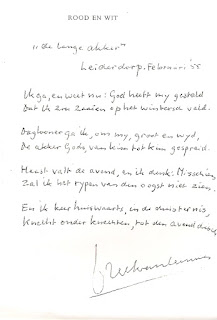 ROOD EN WIT
"De lange akker"
Leiderdorp. Februari '55
Ik ga, en weet nu: God heeft my gesteld
Dat ik zou zaaien op het wintersch veld.
Daglooner ga ik, om my, groot en wyd,
De akker Gods, van kim tot kim gespreid.
Haast valt de avond, en ik denk: Misschien
Zal ik het rypen van den oogst niet zien.
En ik keer huiswaarts, in de duisternis,
Knecht onder knechten, tot den avond